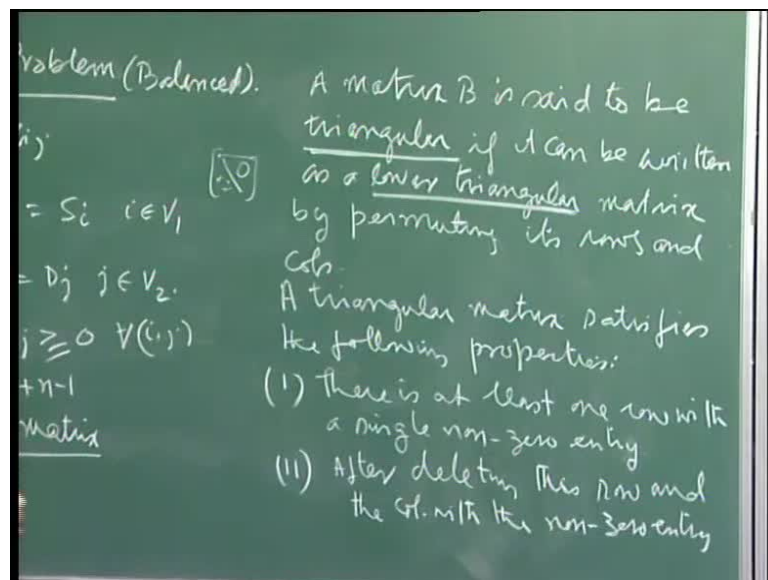 roblem (Balanced).
ij
= Si i ∈ V1
= Dj j ∈ V2.
j ≥ 0 ∀(i,j)
+n-1
matrix
A matrix B is said to be
triangular if it can be written
as a lower triangular matrix
by permuting its rows and
cols.
A triangular matrix satisfies
the following properties:
(I) There is at least one row with
a single non-zero entry
(II) After deleting this row and
the col. with the non-zero entry